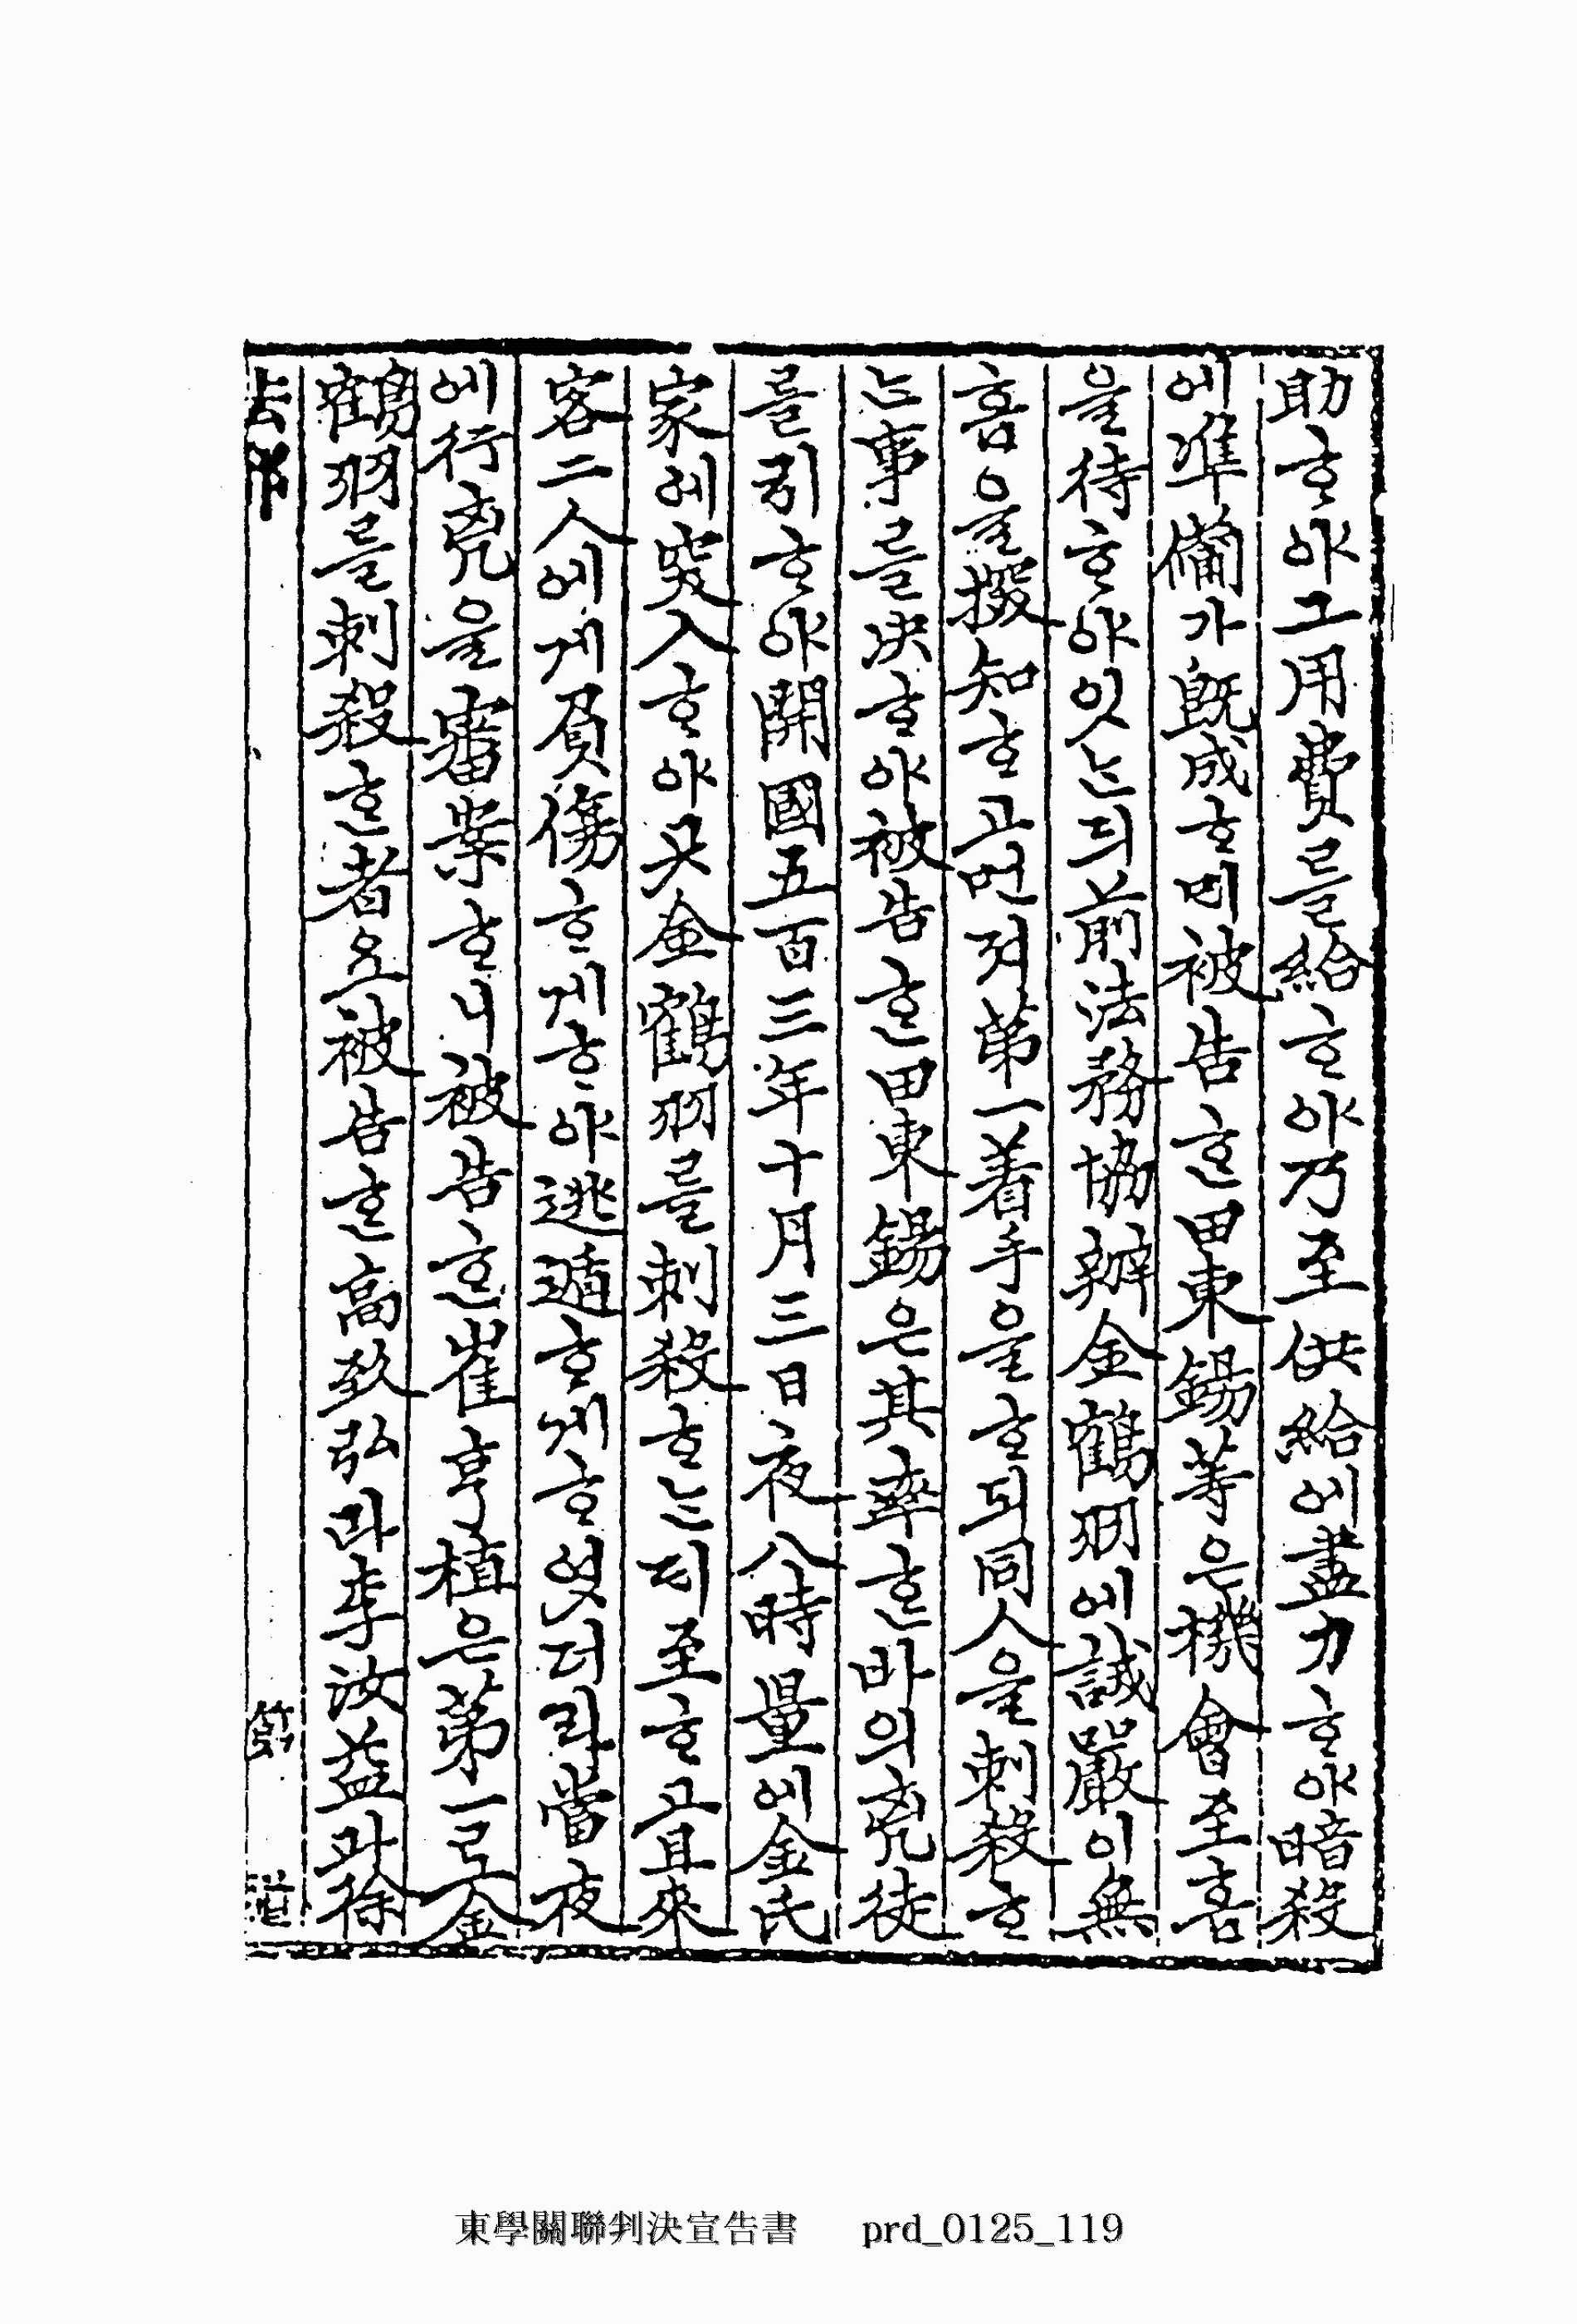 助ᄒᆞ야그用費를給ᄒᆞ야乃至供給에盡力ᄒᆞ야暗殺
에準備가旣成ᄒᆞᄆᆡ被告ᄒᆞᆫ田東錫等은機會至흠
을待ᄒᆞ야잇ᄂᆞᆫ듸前法務協辦金鶴羽에誡嚴이無
흠을探知ᄒᆞ고먼져第一着手을ᄒᆞ되同人을刺殺ᄒᆞ
ᄂᆞᆫ事를决ᄒᆞ야被告ᄒᆞᆫ田東錫은其率ᄒᆞᆫ바의兇徒
를引ᄒᆞ야開國五百三年十月三日夜八時量에金氏
家에突入ᄒᆞ야곳金鶴羽를刺殺ᄒᆞᄂᆞᆫᄃᆡ至ᄒᆞ고且來
客二人에게負傷ᄒᆞ게ᄒᆞ야逃遁ᄒᆞ게ᄒᆞ엿더라當夜
에行兇을審案ᄒᆞ니被告ᄒᆞᆫ崔亨植은第一로金
鶴羽를刺殺ᄒᆞᆫ者오被告ᄒᆞᆫ高致弘과李汝益과徐